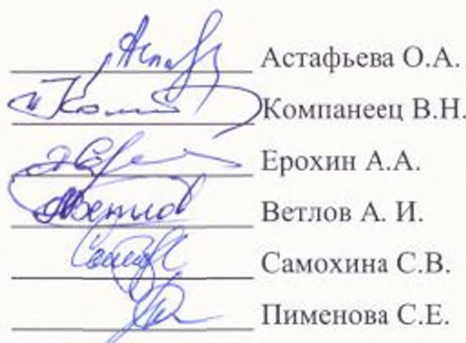 Астафьева О.А.
Компанеец В.Н.
Ерохин А.А.
Ветлов А. И.
Самохина С.В.
Пименова С.Е.